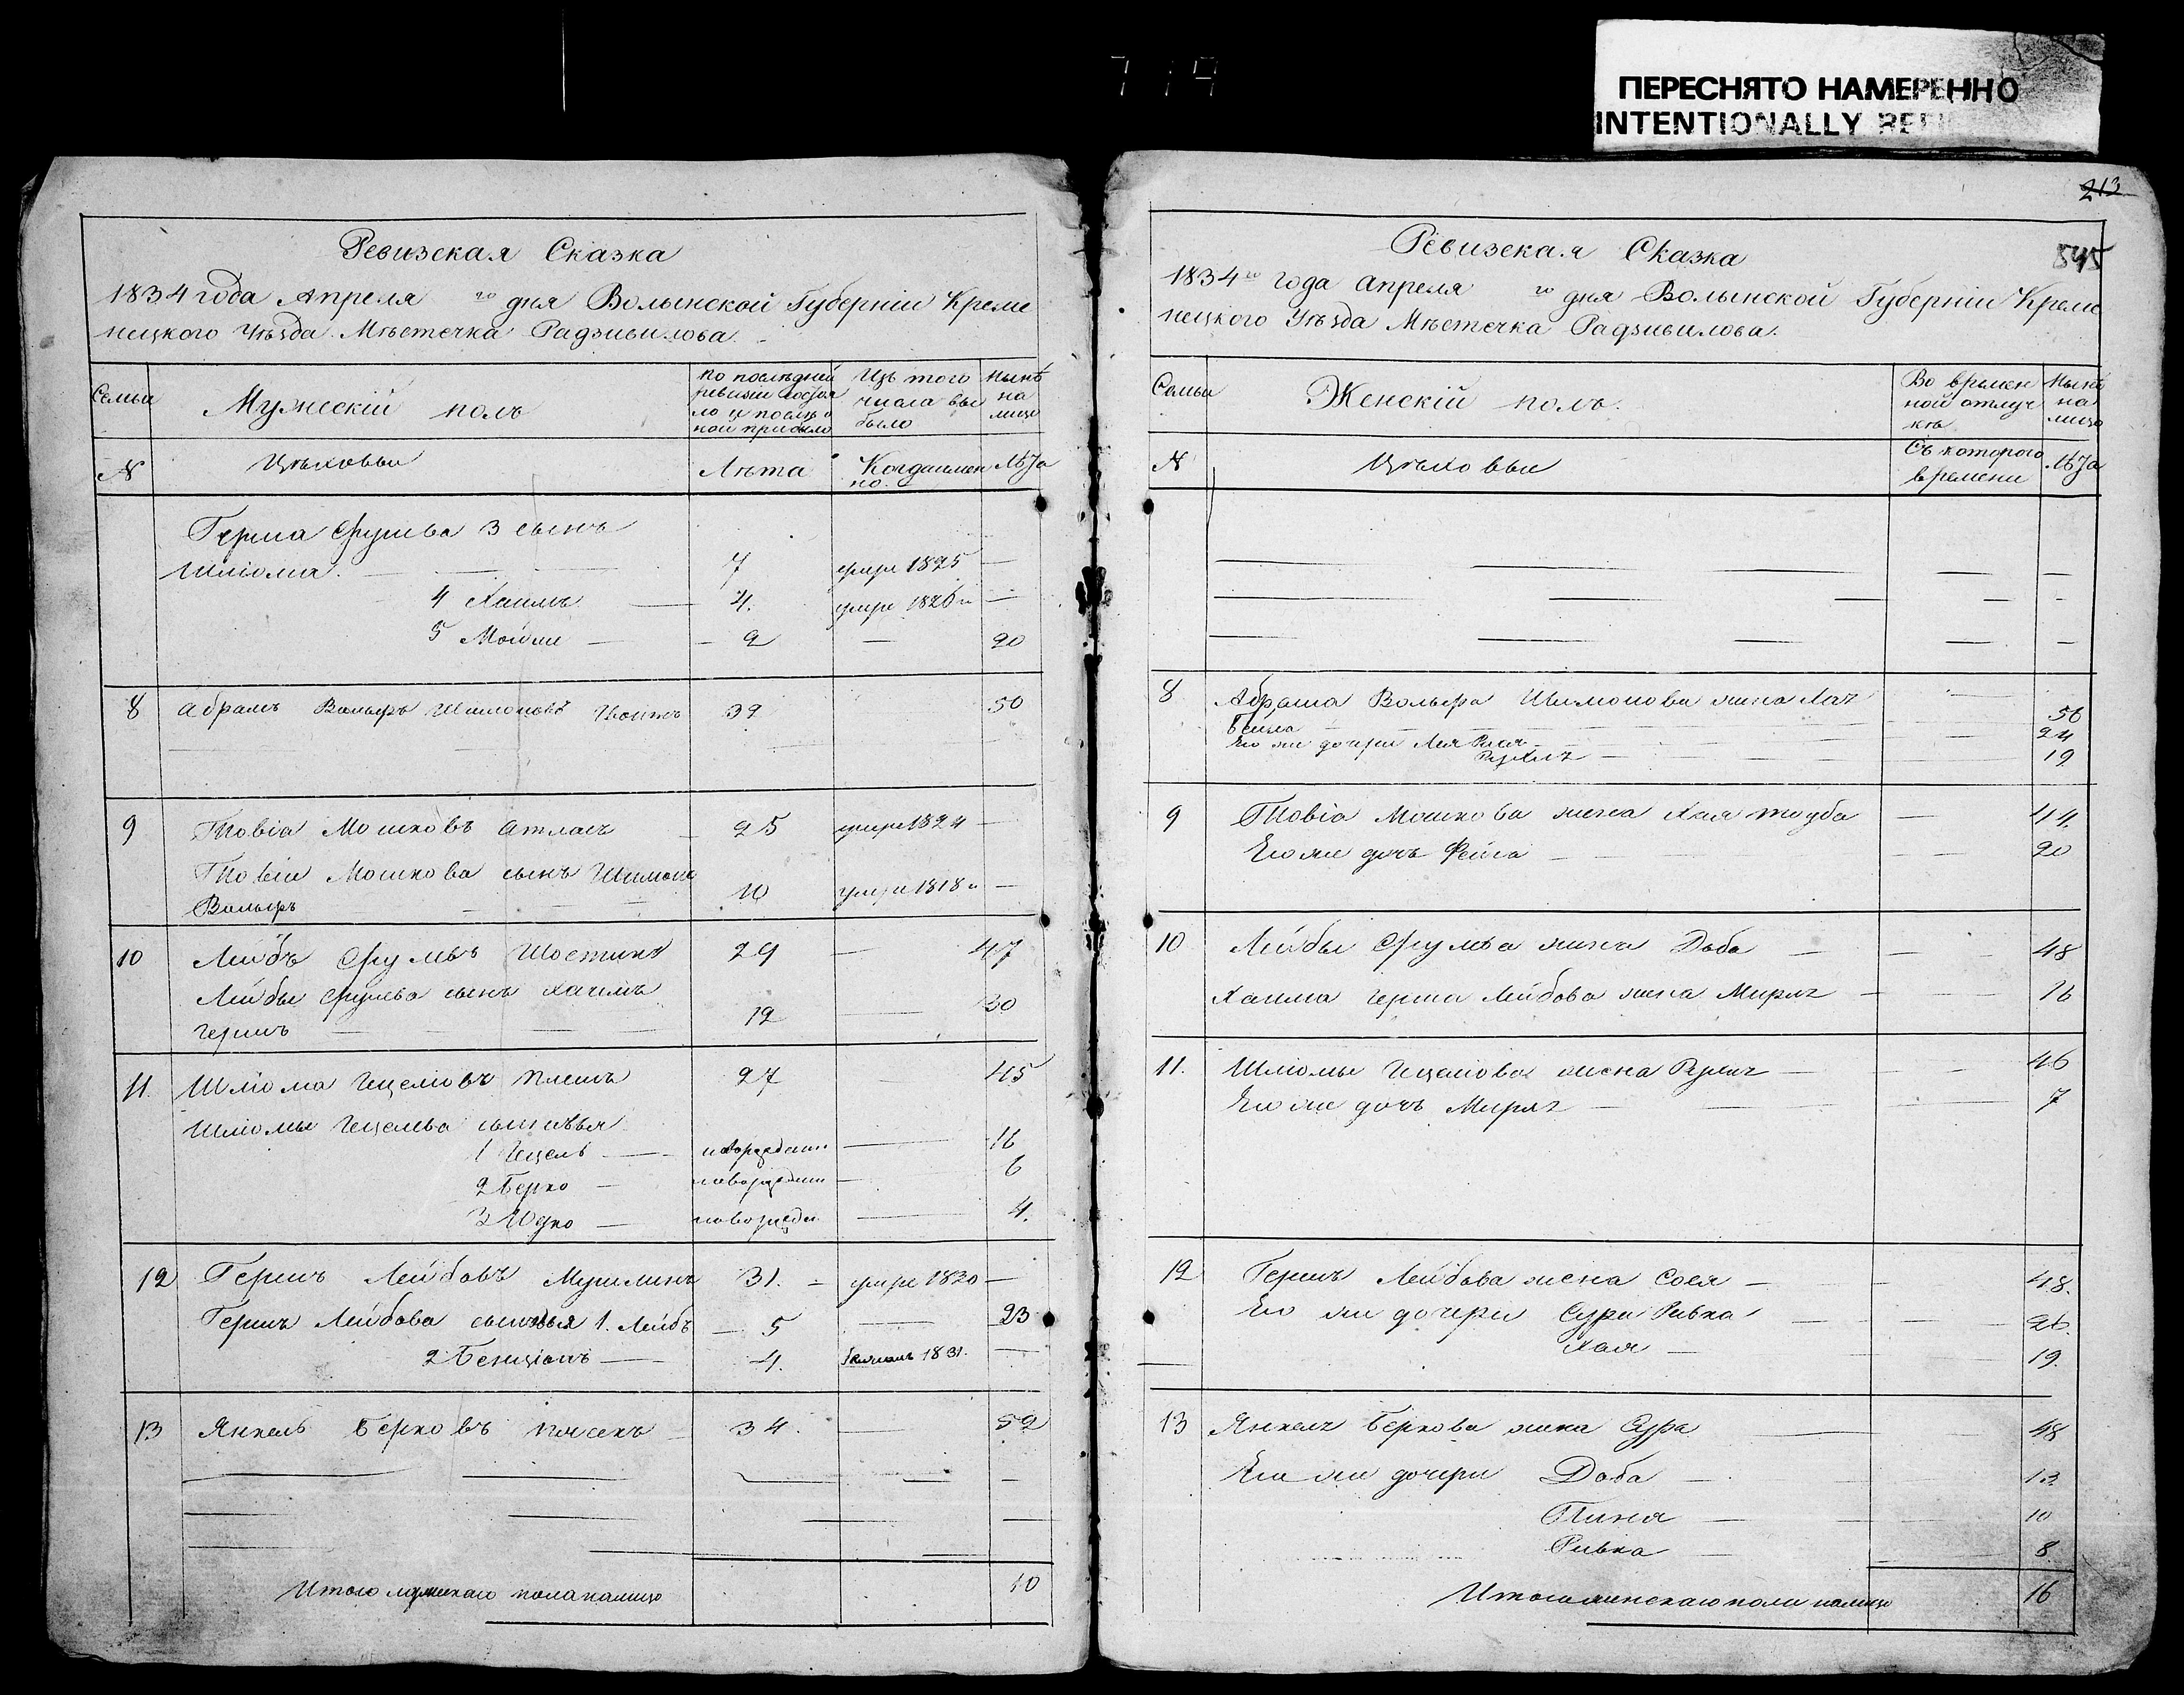 714
ПЕРЕСНЯТО НАМЕРЕННО
INTENTIONALLY
213
Ревизская Сказка
1834 года Апреля го дня Волынской Губерніи Креме
нецкого Уѣзда Мѣстечка Радзивилова.
Семьи
Мужескій полъ
по послѣдней
ревизіи состоя
ло и после о
ной прибыло
Изъ того
числа вы
было
Нынѣ
на
лицо
N
Цеховые
Лѣта
Когда имен
но
Лѣта
Герша Срулева 3 сынъ
Шліома 7 умре 1825 —
4 Хаимъ 4. умре 1826 —
5 Мошко — 2 — 20
8 Абрамъ Вольфъ Шимоновъ 32 50
9 Товіа Мошковъ Атласъ 25 умре 1824 —
Товіи Мошкова сынъ Шимонъ
Вольфъ 10 умре 1818 —
10 Лейбъ Срулевъ Шостикъ 29 — 47
Лейбы Срулева сынъ Хаимъ
Гершъ 12 30
11. Шліома Гецелювъ 27 — 45
Шліомы Гецелева сыновья
1 Гецель — новорожден 16
2 Берко — новорожден — 6
3 Юдко — новорожде 4.
12 Гершъ Лейбовъ 31. — умре 1820 —
Гершъ Лейбова сыновья 1. Лейбъ — 5 — 23
2 Бенціонъ — 4. 1831. —
13 Янкель Берковъ 34. — 52
Итого мужескаго пола налицо 10
Ревизская Сказка
545
1834го года Апреля го дня Волынской Губерніи Креме
нецкого Уѣзда Мѣстечка Радзивилова.
Семьи
Женскій полъ.
Во времен
ной отлуч
кѣ
Нынѣ
на
лицо
N
Цеховые
Съ которого
времени
Лѣта
8 Абрама Вольфа Шимонова жена
Бейла 56
Его же дочери Лея 24
Рухль — 19
9 Товіа Мошкова жена Хая Тауба — 44.
Его же дочь Фейга — 20
10 Лейбы Срулева жена Доба — 48
Хаима Герша Лейбова жена Мирля — 16
11. Шліомы Гецелова жена 46
Его же дочь Мирля — 7
12 Гершъ Лейбова жена Сося — 48.
Его же дочери Сура Ривка 26.
Хая — 19.
13 Янкель Беркова жена Сура 48
Его же дочери Доба — 12
Пиня — 10
Ривка 8
Итого женскаго пола налицо 16